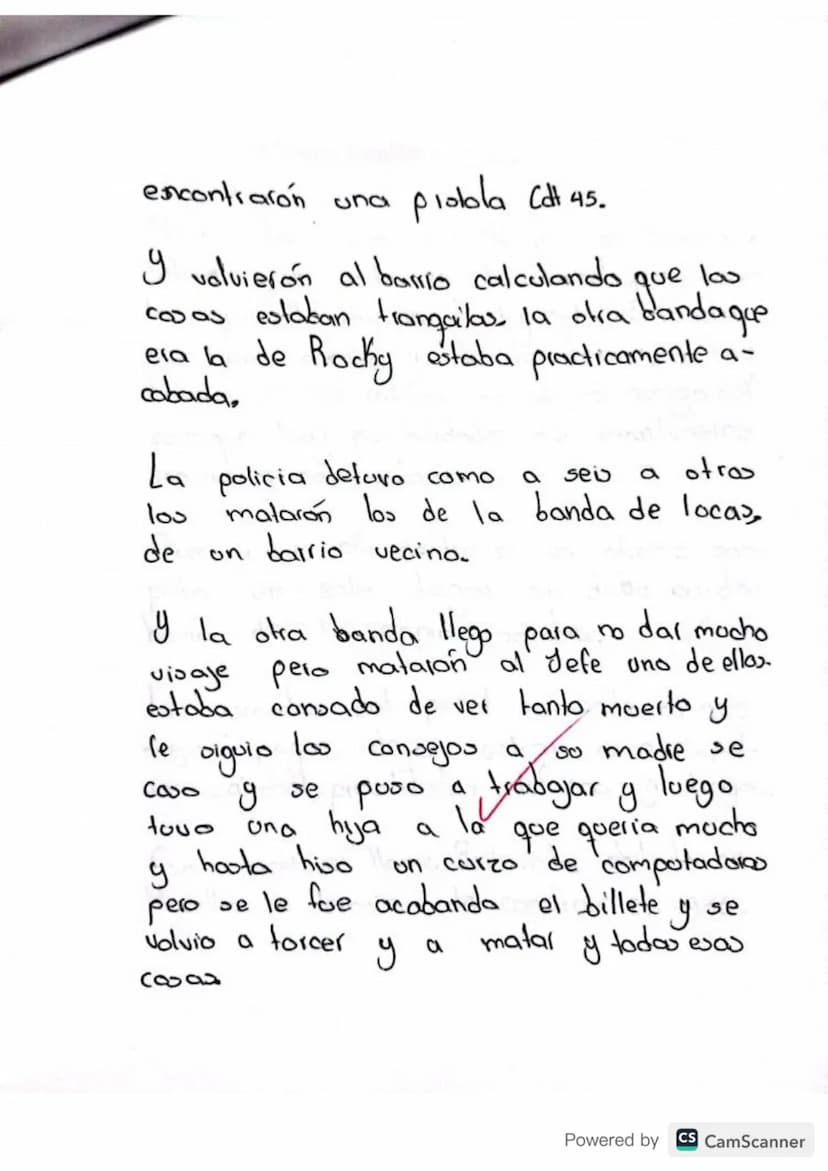 encontrarón una pistola Colt 45.
Y volvierón al barrio calculando que las
cosas estaban tranquilas la otra banda que
era la de Rocky estaba practicamente a-
cabada,
La policia detuvo como a seis a otros
los matarón los de la banda de locas,
de un barrio vecino.
Y la otra banda llego para no dar mucho
visaje pero matarón al Jefe uno de ellos.
estaba cansado de ver tanto muerto y
le siguio los consejos a su madre se
caso y se puso a trabajar y luego
tuvo una hija a la que queria mucho
y hasta hiso un curzo de computadoras
pero se le fue acabando el billete y se
volvio a torcer y a matar y todas esas
cosas
Powered by CS CamScanner